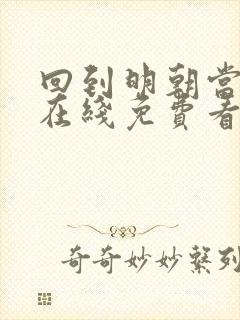 回到明朝當
在綫免費看
奇奇妙妙系列